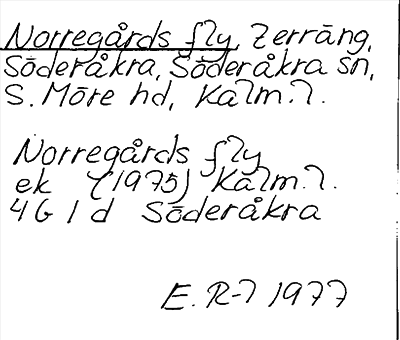 Norregårds fly, Terräng,
Söderåkra, Söderåkra sn,
S. Möre hd, Kalm. l.
Norregårds fly
ek Y (1975) Kalm. l.
4G 1 d Söderåkra
E. R-7 1977